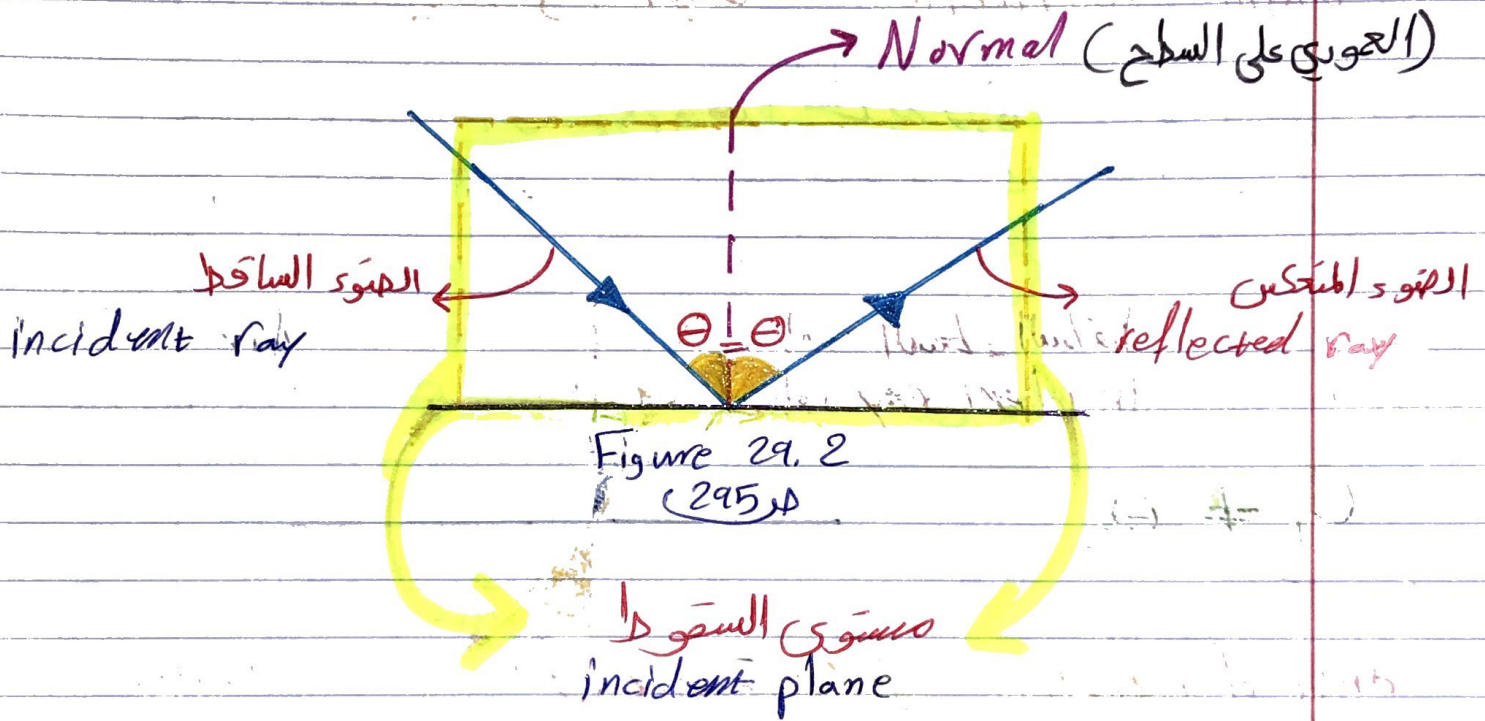 Normal (العمودي على السطح)
الضوء الساقط
incident ray
الضوء المنعكس
reflected ray
θ = θ
Figure 29.2
ص295
مستوى السقوط
incident plane